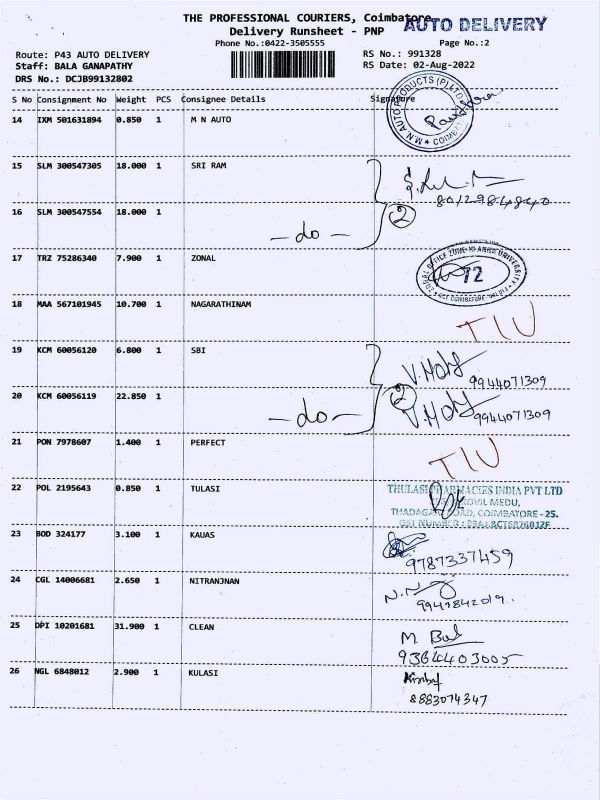 THE PROFESSIONAL COURIERS, Coimbatore
AUTO DELIVERY
Delivery Runsheet - PNP
Phone No.:0422-3505555
Page No.:2
Route: P43 AUTO DELIVERY
RS No.: 991328
Staff: BALA GANAPATHY
RS Date: 02-Aug-2022
DRS No.: DCJB99132802
S No Consignment No Weight PCS Consignee Details Signature
14 IXM 501631894 0.850 1 M N AUTO
M.N. AUTO PRODUCTS (P) LTD
15 SLM 300547305 18.000 1 SRI RAM
8012984840
16 SLM 300547554 18.000 1
- do - 2
17 TRZ 75286340 7.900 1 ZONAL
72
18 MAA 567101945 10.700 1 NAGARATHINAM
TIU
19 KCM 60056120 6.800 1 SBI
9944071309
20 KCM 60056119 22.850 1
- do - 2
9944071309
21 PON 7978607 1.400 1 PERFECT
TIU
22 POL 2195643 0.850 1 TULASI
THULASI PHARMACIES INDIA PVT LTD
KOVIL MEDU,
ROAD, COIMBATORE - 25.
23 BOD 324177 3.100 1 KAUAS
9787337459
24 CGL 14006681 2.650 1 NITRANJNAN
9942842019.
25 DPI 10201681 31.900 1 CLEAN
9364403005
26 NGL 6848012 2.900 1 KULASI
8883074347